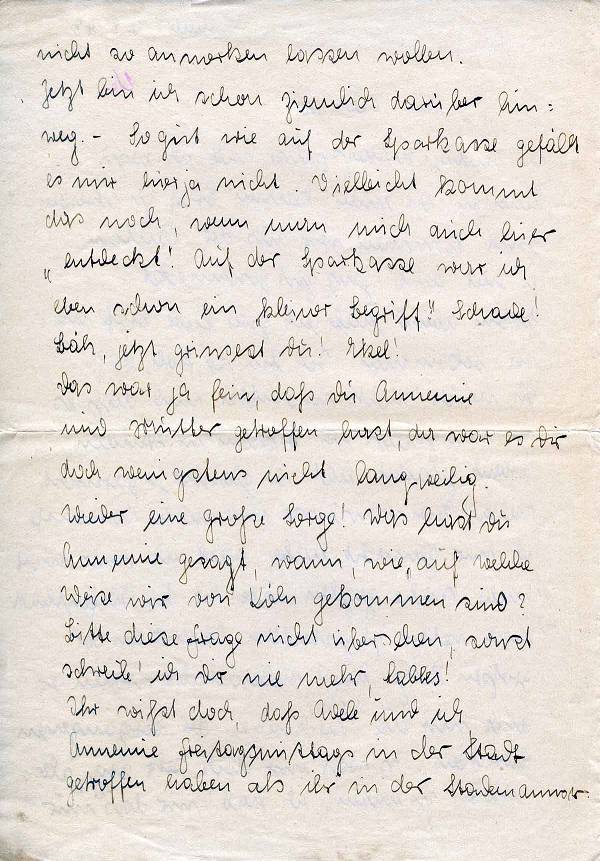 nicht so anmerken lassen wollen.
Jetzt bin ich schon ziemlich darüber hin=
weg. – So gut wie auf der Sparkasse gefällt
es mir hier ja nicht. Vielleicht kommt
das noch, wenn man mich auch hier
„entdeckt“! Auf der Sparkasse war ich
eben schon ein „kleiner Begriff“! Schade!
Bäh, jetzt grinsest du! Ekel!
Das war ja fein, daß du Annemie
und Mutter getroffen hast, da war es dir
doch wenigstens nicht langweilig.
Wieder eine große Sorge! Was hast du
Annemie gesagt, wann, wie, auf welche
Weise wir von Köln gekommen sind?
Bitte diese Frage nicht übersehen, sonst
schreibe ich dir nie mehr,
Ihr wißt doch, daß Adele und ich
Annemie freitagsmittags in der Stadt
getroffen haben als ihr in der